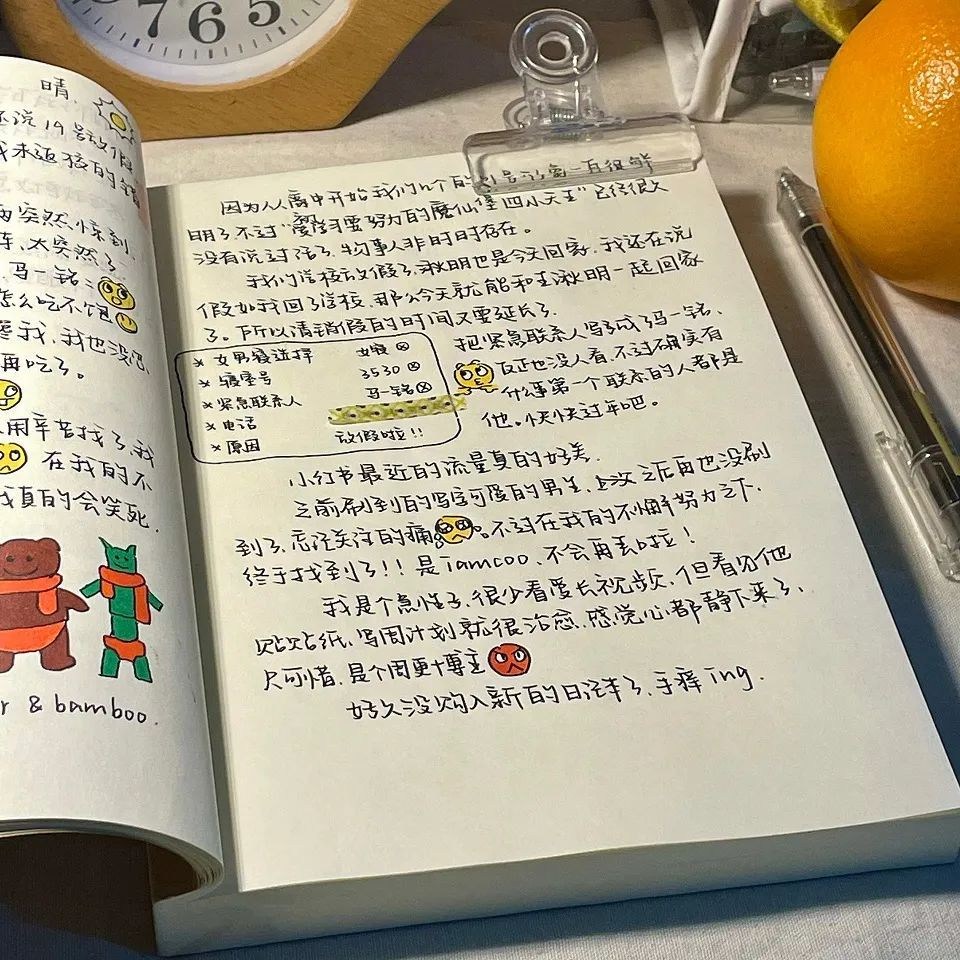 7 6 5
晴.
还说19号放假
两突然.惊到
太突然了.
马一铭:
怎么吃不饱
我,我也没
再吃了。
用辛苦找了,我
在我的不
我真的会笑死.
r & bamboo.
因为从高中开始我们几个的
明了.不过“需要努力的魔仙堡四小天王”已经很久
没有说过话了.物事人非时时存在。
我们学校放假了,湫明也是今天回家.我还在说
假如我回了学校.那么今天就能和王湫明一起回家
了。所以请销假的时间又要延长了.
* 女男寝选择 女寝
* 寝室号 3530
* 紧急联系人 马一铭
* 电话
* 原因 放假啦!!
把紧急联系人写成了马一铭.
反正也没人看.不过确实有
什么事第一个联系的人都是
他。快快过年吧。
小红书最近的流量真的好差.
之前刷到的写字可爱的男生,上次之后再也没刷
到了,忘注关注的痛 。不过在我的不懈努力之下.
终于找到了!!是Tamcoo.不会再丢啦!
我是个急性子,很少看爱长视频.但看见他
贴贴纸.写周计划就很治愈.感觉心都静下来了、
只可惜.是个周更博主
好久没购入新的日记本了.手痒ing.